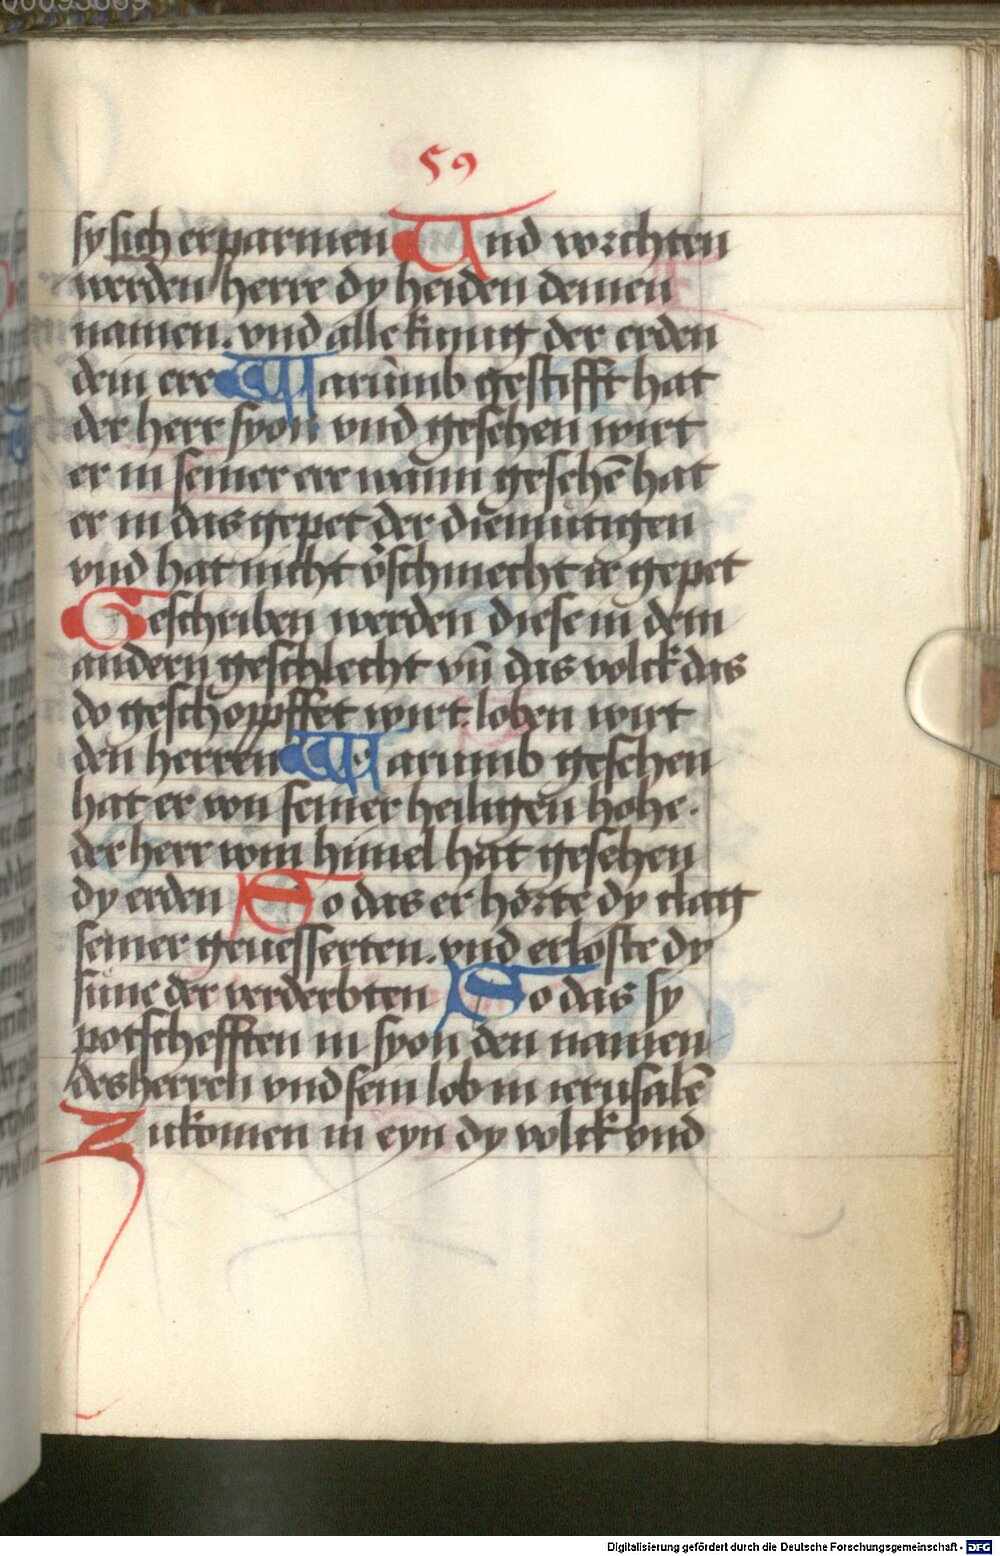 00093869
59
sy sich erparmen Und vorchten
werden herre dy heiden deinen
namen. vnd alle kunig der erden
dein ere Warumb gestifft hat
der herr syon vnd gesehen wirt
er in seiner ere wann gesehē hat
er in das gepet der diemutigen
vnd hat nicht v̄schmecht ir gepet
Geschriben werden diese in dem
andern geschlecht vn̄ das volck das
do geschoppffet wirt. loben wirt
den herren Warumb gesehen
hat er von seiner heiligen hohe.
der herr vom himel hat gesehen
dy erden So das er horte dy clag
seiner geuesserten. vnd erloste dy
sune der verderbten So das sy
potschefften in syon den namen
des herren vnd sein lob in ierusalē
Zukomen in eyn dy volck vnd
Digitalisierung gefördert durch die Deutsche Forschungsgemeinschaft - DFG